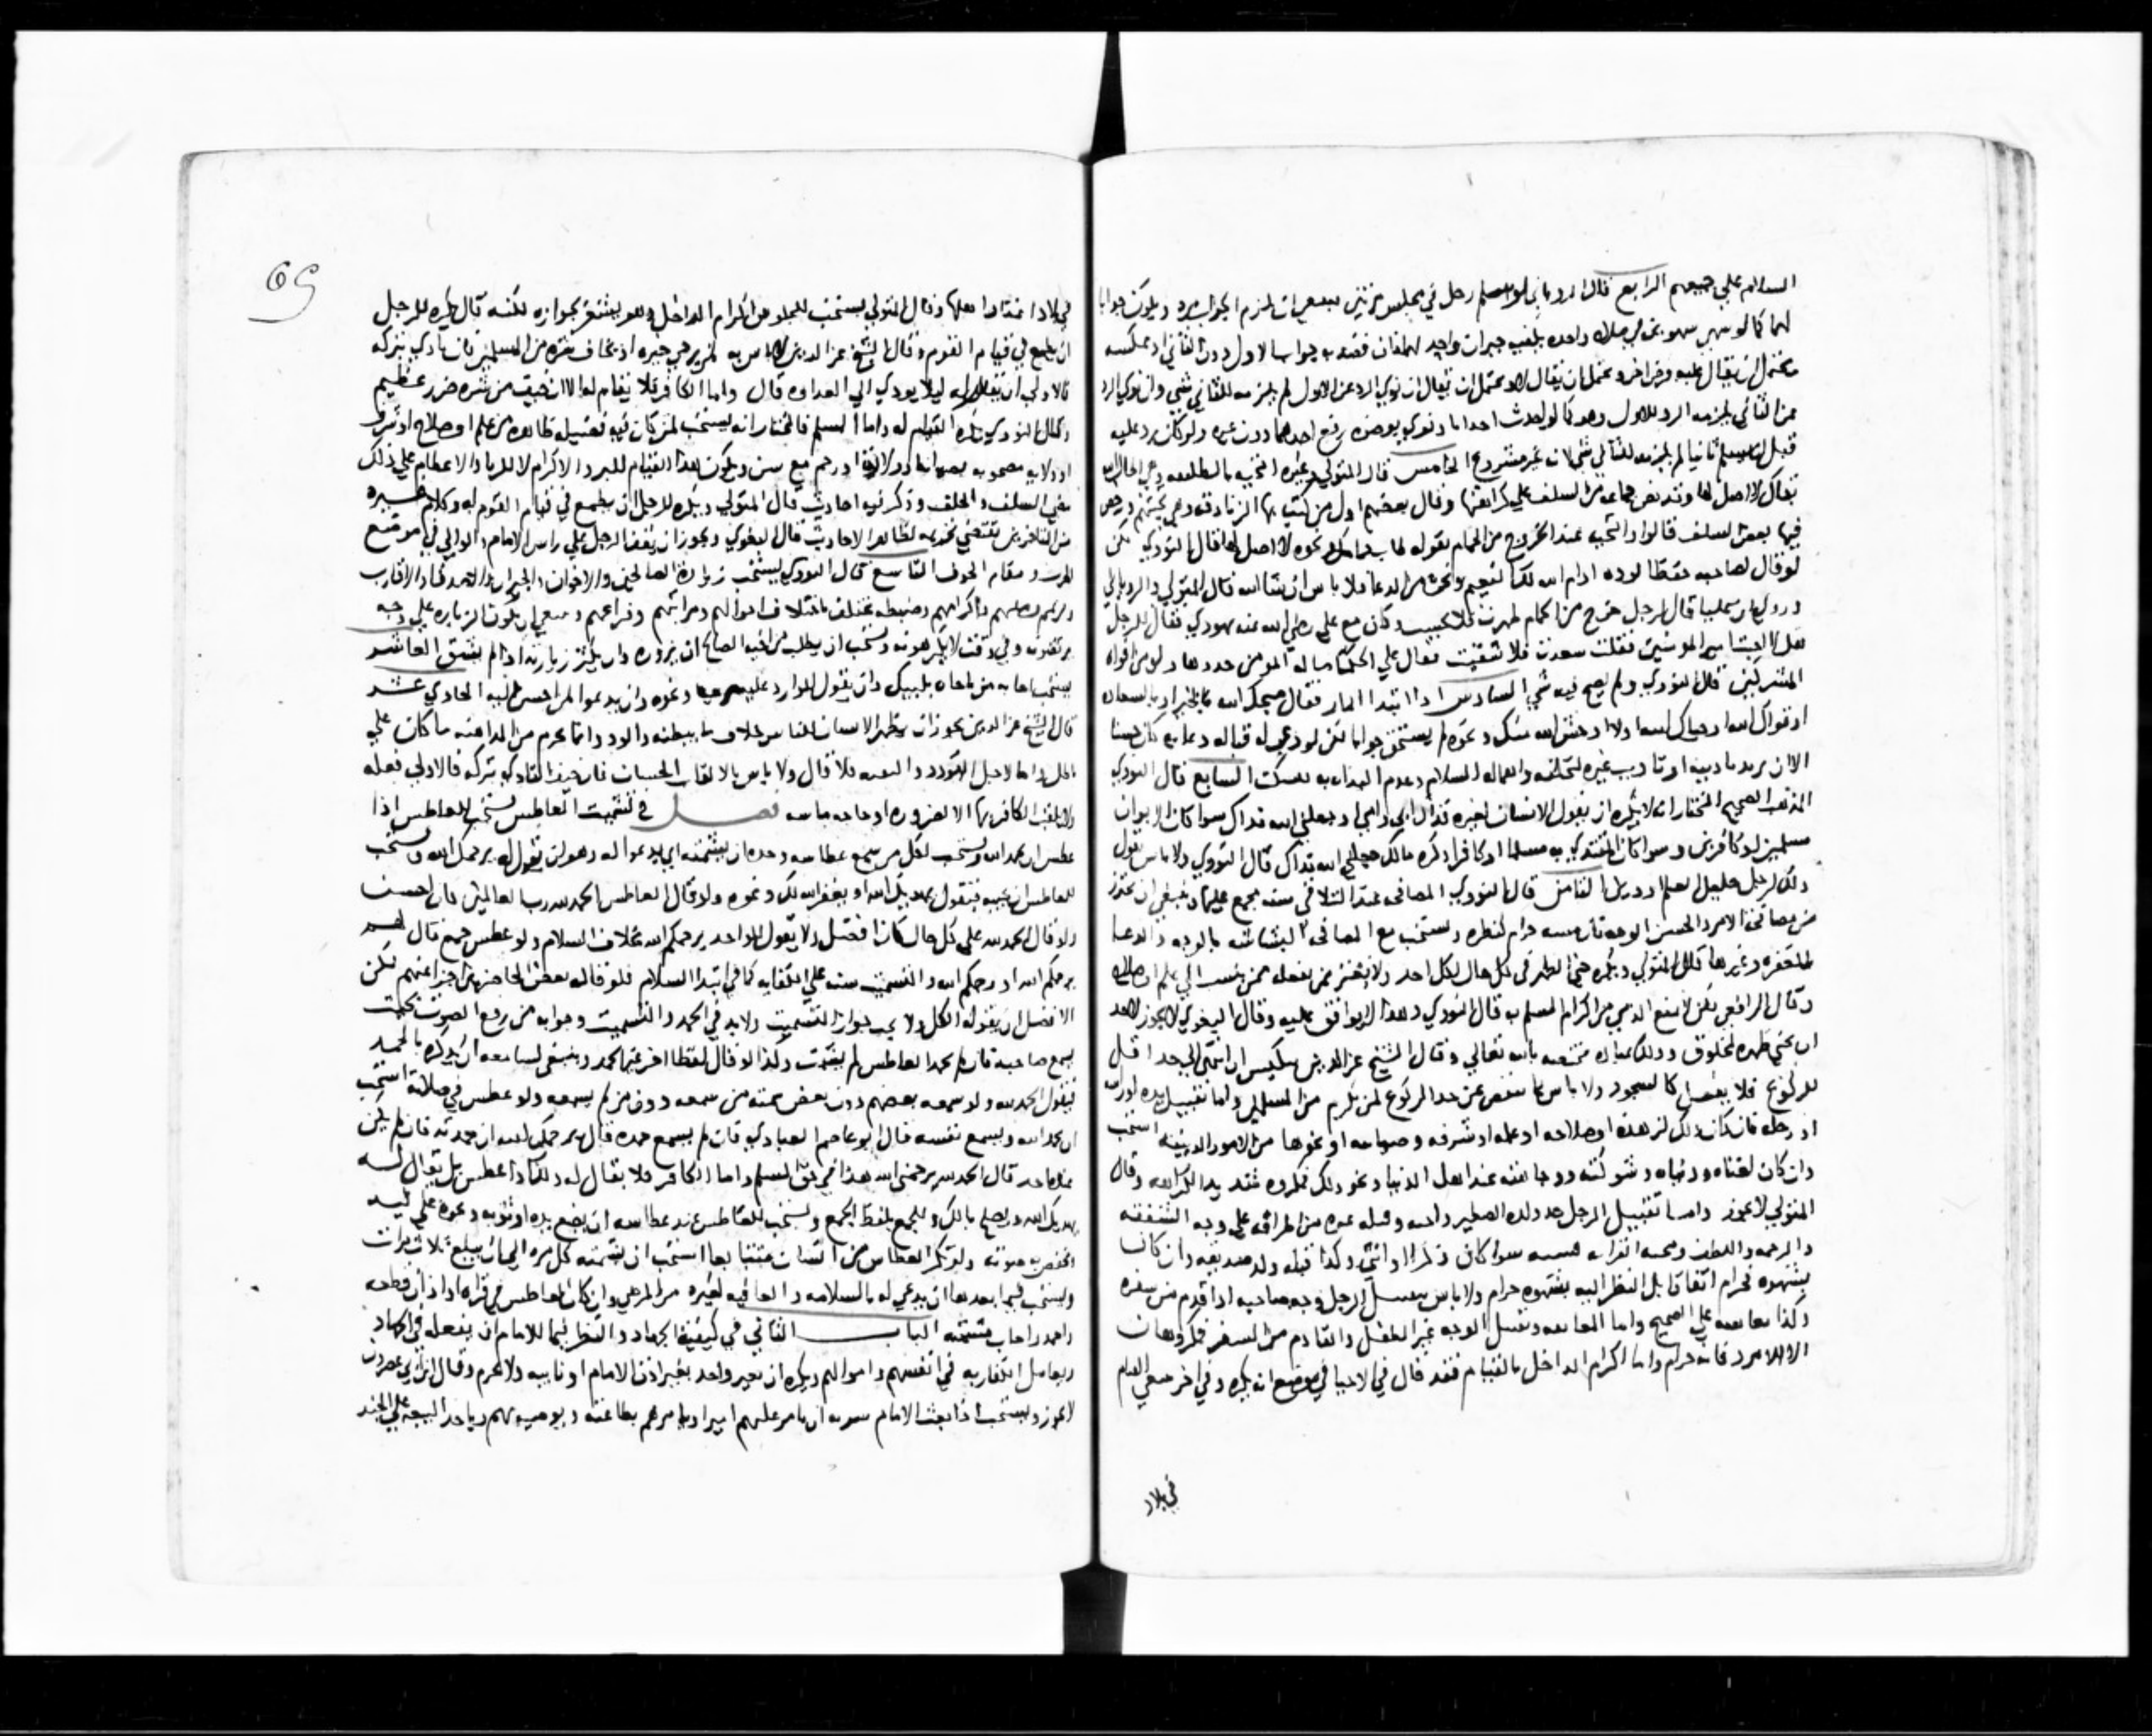 السلام علي جميعهم الرابع قال الروياني لو سلم رجل في مجلس مرتين لم يلزم الجواب ويكون جوابا
لهما كما لو سهي سهوين في صلاة واحدة
يحتمل ان يقال عليه فرض اخر ويحتمل ان يقال لا ويحتمل ان يقال ان نوي الرد عن الاول لم يلزمه للثاني شي وان نوي الرد
عن الثاني لم يلزمه الرد للاول وهو كما لو احدث احداثا ونوي بوضوه رفع احدها دون غيره ولو كان رد عليه
قبل ان يسلم ثانيا لم يلزمه للثاني شي لانه غير مشروع الخامس قال المتولي وغيره التحية بالطلبقة وهي اطال الله
بقاك لا اصل لها وقد نص جماعة من السلف علي كراهتها وقال بعضهم اول من كتب بها الزنادقة
فيها بعض السلف قالوا والتحية عند الخروج من الحمام بقوله طاب حمامك ونحوه لا اصل لها قال النووي لكن
لو قال لصاحبه حفظا لوده ادام الله لك النعيم ونحوه من الدعا فلا باس ان شا الله قال المتولي والروياني
وروي ان عليا قال لرجل خرج من الحمام طهرت فلا نجست وكان مع علي رضي الله عنه يهودي فقال للرجل
هلا اجبت امير المومنين فقلت سعدت فلا شقيت فقال علي الحكمة ضالة المومن خذوها ولو من افواه
المشركين قال النووي ولم يصح فيه شي السادس اذا ابتدا المار فقال صبحك الله بالخير او بالسعادة
او قواك الله او حياك الله او لا اوحش الله منك ونحوه لم يستحق جوابا لكن لو دعي له قبالة دعايه كان حسنا
الا ان يريد تاديبه او تاديب غيره لتخلفه واهماله السلام السابع قال النووي
المذهب الصحيح المختار انه لا يكره ان يقول الانسان لغيره فداك ابي وامي او جعلني الله فداك سوا كان الابوان
مسلمين او كافرين وسوا كان المفتدي به مسلما او كافرا وكره مالك جعلني الله فداك قال النووي ولا باس بقول
ذلك لرجل جليل العلم او دين الثامن قال النووي المصافحة عند التلاقي سنة مجمع عليها وينبغي ان يحترز
من مصافحة الامرد الحسن الوجه فان مسه حرام كنظره ويستحب مع المصافحة البشاشة بالوجه والدعا
بالمغفرة وغيرها قال المتولي ويكره حني الظهر في كل حال لكل احد ولا يغتر بمن يفعله ممن ينسب الي علم او صلاح
وقال الرافعي لكن لا يمنع الذمي من اكرام المسلم به قال النووي وهذا لا يوافق عليه وقال البغوي لا يجوز لاحد
ان يحني ظهره لمخلوق وذلك عبادة مختصة بالله تعالي وقال الشيخ عز الدين تنكيس الراس ان انتهي الي حد اقل
الركوع فلا يفعل كالسجود ولا باس بما ينقص عن حد الركوع لمن يكرم من المسلمين واما تقبيل يده او راسه
او رجله فان كان ذلك لزهده او صلاحه او علمه او شرفه وصيانته او نحوها من الامور الدينية استحب
وان كان لغناه ودنياه وشوكته ووجاهته عند اهل الدنيا ونحو ذلك فمكروه شديد الكراهة وقال
المتولي لا يجوز واما تقبيل الرجل خد ولده الصغير واخيه وقبلة غيره من اطرافه علي وجه الشفقة
والرحمة واللطف ومحبة القرابة فسنة سوا كان ذكرا او انثي وكذا قبلة ولد صديقه وان كان
بشهوة فحرام اتفاقا بل النظر اليه بشهوة حرام ولا باس بتقبيل الرجل وجه صاحبه اذا قدم من سفره
وكذا معانقته علي الصحيح واما المعانقة وتقبيل الوجه لغير الطفل والقادم من السفر فمكروهان
الا الامرد فانه حرام واما اكرام الداخل بالقيام فقد قال في الاحيا في موضع انه يكره وفي اخر
في بلاد
في بلاد اعتاد اهلها وقال المتولي يستحب للجلوس اكرام الداخل وهو يشعر بجوازه لكنه قال يكره للرجل
ان يطمع في قيام القوم وقال الشيخ عز الدين لا باس به لمن يرجي خيره او يخاف شره من المسلمين فان تاذي بتركه
فالاولي ان يقام له ليلا يودي الي العداوة قال واما الكافر فلا يقام له الا ان خيف من شره ضرر عظيم
وقال النووي يكره القيام له واما المسلم فالمختار انه يستحب لمن كان فيه فضيلة ظاهرة من علم او صلاح او شرف
او ولاية مصحوبة بصيانة وولادة او رحم مع سن ويكون هذا القيام للبر والاكرام لا للريا والاعظام علي ذلك
مضي السلف والخلف وذكر فيه احاديث قال المتولي ويكره للرجل ان يطمع في قيام القوم له وكلام غيره
من المتاخرين يقتضي تحريمه لظاهر الاحاديث قال البغوي ويجوز ان يقف الرجل علي راس الامام والوالي في موضع
الحرب ومقام الخوف التاسع قال النووي يستحب زيارة الصالحين والاخوان والجيران والاصدقا والاقارب
وبرهم وصلتهم واكرامهم وضبطه يختلف باختلاف احوالهم ومراتبهم وفراغهم وينبغي ان يكون الزيارة علي وجه
يرتضونه وفي وقت لا يكرهونه ويستحب ان يطلب من اخيه الصالح ان يزوره وان يكثر زيارته اذا لم يشق العاشر
يستحب اجابة من ناداه بلبيك وان يقول للوارد عليه مرحبا ونحوه وان يدعوا لمن احسن اليه الحادي عشر
قال الشيخ عز الدين يجوز ان يظهر الانسان للناس خلاف ما يبطنه وانما يحرم من المداهنة ما كان علي
باطل قال ولا باس بالالقاب الحسان فان خيف التاذي بتركه فالاولي فعله
ولا يلقب الكافر بها الا لضرورة او حاجة ماسة فصل في تشميت العاطس يستحب للعاطس اذا
عطس ان يحمد الله ويستحب لكل من سمع عطاسه وحمده ان يشمته اي يدعوا له وهو ان يقول له يرحمك الله ويستحب
للعاطس ان يجيبه فيقول يهديك الله او يغفر الله لك ونحوه ولو قال العاطس الحمد لله رب العالمين كان احسن
ولو قال الحمد لله علي كل حال كان افضل ولا يقول للواحد يرحمكم الله بخلاف السلام ولو عطس جمع قال لهم
يرحمكم الله او رحمكم الله والتشميت سنة علي الكفاية كما في ابتدا السلام فلو قاله بعض الحاضرين اجزا عنهم لكن
الافضل ان يقوله الكل ولا يجب جواب التشميت ولا بد في الحمد والتشميت وجوابه من رفع الصوت بحيث
يسمع صاحبه فان لم يحمد العاطس لم يشمت وكذا لو قال لفظا اخر غير الحمد وينبغي لسامعه ان يذكره بالحمد
فيقول الحمد لله ولو سمعه بعضهم دون بعض شمته من سمعه دون من لم يسمعه ولو عطس في صلاته استحب
ان يحمد الله ويسمع نفسه قال ابو عاصم العبادي فان لم يسمع حمده قال يرحمك الله ان حمدته فان لم يكن
عنده احد قال الحمد لله يرحمني الله هذا في حق المسلم واما الكافر فلا يقال له ذلك اذا عطس بل يقال له
يهديك الله ويصلح بالك وللجمع بلفظ الجمع ويستحب للعاطس عند عطاسه ان يضع يده او ثوبه ونحوه علي فيه
ويخفض به صوته ولو تكرر العطاس من انسان متتابعا استحب ان يشمته كل مرة الي ان يبلغ ثلاث مرات
ويستحب فيما بعدها ان يدعي له بالسلامة والعافية لغيره من المرضي وان كان العاطس في قراة او اذان قطعه
واحمد واجاب مشمته الباب الثاني في كيفية الجهاد والنظر فيما للامام ان يفعله في الجهاد
ويعامل الكفار به في انفسهم واموالهم ويكره ان يغير واحد بغير اذن الامام او نايبه ولا يحرم وقال ابن ابي عصرون
لا يجوز ويستحب اذا بعث الامام سرية ان يامر عليهم اميرا ويامرهم بطاعته ويوصيه بهم وياخذ البيعة علي الجند